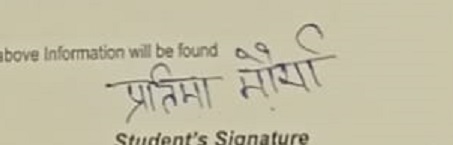 above Information will be found
प्रतिमा मौर्या
Student's Signature